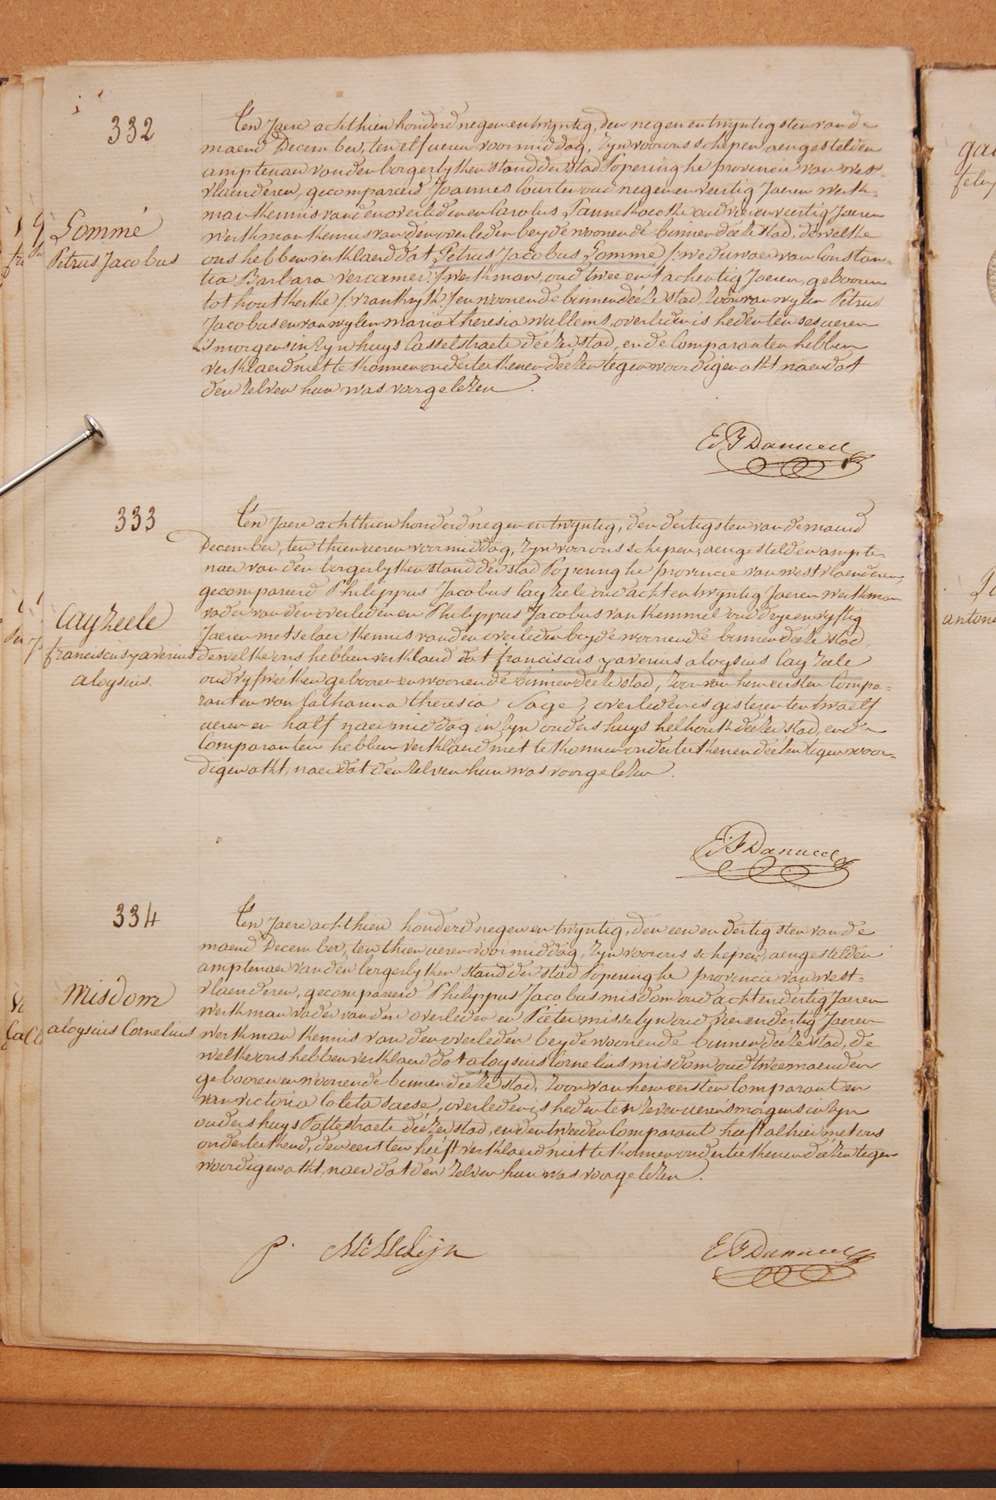 332
Ten Jaere achthien honderd negen en twyntig, den negen en twyntigsten van de
maend December, ten elf ueren voormiddag, Zyn voor ons schepen aengestelden
amptenaer van den borgerlyken stand der stad Poperinghe provincie van west-
vlaenderen, gecompareerd Joannes oud negen en veertig Jaeren werk-
man kennis van den overledenen Carolus Pannekoecke oud vier en veertig Jaeren
werkman kennis van den overleden beyde woonende binnen deéze stad, dewelke
Gommé
Petrus Jacobus
ons hebben verklaerd dat Petrus Jacobus Gommé /: weduwaer van Constan-
tia Barbara vercamer :/ werkman, oud twee en tachentig Jaeren, geboren
tot houtkerke /: vrankryk :/ en woonende binnen déeze stad, Zoon van wylen Petrus
Jacobus en van wylen maria theresia wallems, overleden is heden ten ses ueren
's morgens in Zyn huys Casselstraete déezer stad, en de Comparanten hebben
verklaerd niet te konnen onderteekenen deézen tegenwoordigen akt naer dat
den Zelven hun was voorgelezen.
E F Danneel
333
Ten Jaere achthien honderd negen en twyntig, den dertigsten van de maend
December, ten thien ueren voormiddag, Zyn voor ons schepen, aengestelden ampte-
naer van den borgerlyken stand der stad Poperinghe provincie van westvlaenderen,
gecompareerd Philippus Jacobus Cayzeele oud acht en twyntig Jaeren werkman
vader van den overledenen en Philippus Jacobus van kemmel oud dryen vyftig
Jaeren metselaer kennis van den overleden beyde woonende binnen deéze stad,
Cayzeele
franciscus xaverius
aloysius.
dewelke ons hebben verklaerd dat franciscus xaverius aloysius Cayzeele
oud vyf weéken geboren en woonende binnen deéze stad, Zoon van hem eersten Compa-
ranten van Catharina theresia Sage, overleden is gisteren ten twaelf
ueren en half naer middag in Zyn ouders huys helhoek deézer stad, en de
Comparanten hebben verklaerd niet te konnen onderteekenen deézen tegenwoor-
digen akt, naer dat den Zelven hun was voorgelezen.
E F Danneel
334
Ten Jaere achthien honderd negen en twyntig, den een en dertigsten van de
maend December, ten thien ueren voormiddag, Zyn voor ons schepen, aengestelden
amptenaer van den borgerlyken stand der stad Poperinghe provincie van west-
vlaenderen, gecompareerd Philippus Jacobus misdom oud acht en dertig Jaeren
werkman vader van den overledenen en Pieter misselyn oud vier en dertig Jaeren
Misdom
aloysius Cornelius
werkman kennis van den overleden beyde woonende binnen deéze stad, de
welke ons hebben verklaerd dat aloysius Cornelius misdom oud twee maenden
geboren en woonende binnen deéze stad, Zoon van hem eersten Comparant en
van victoria Coleta Saese, overleden is heden ten Zeven ueren 's morgens in Zyn
ouders huys Pottestraete déezer stad, en den tweeden Comparant heeft alhier met ons
onderteekend, den eersten heéft verklaerd niet te konnen onderteekenen deézen tegen-
woordigen akt, naer dat den Zelven hun was voorgelezen.
p. Misselijn
E F Danneel
antone